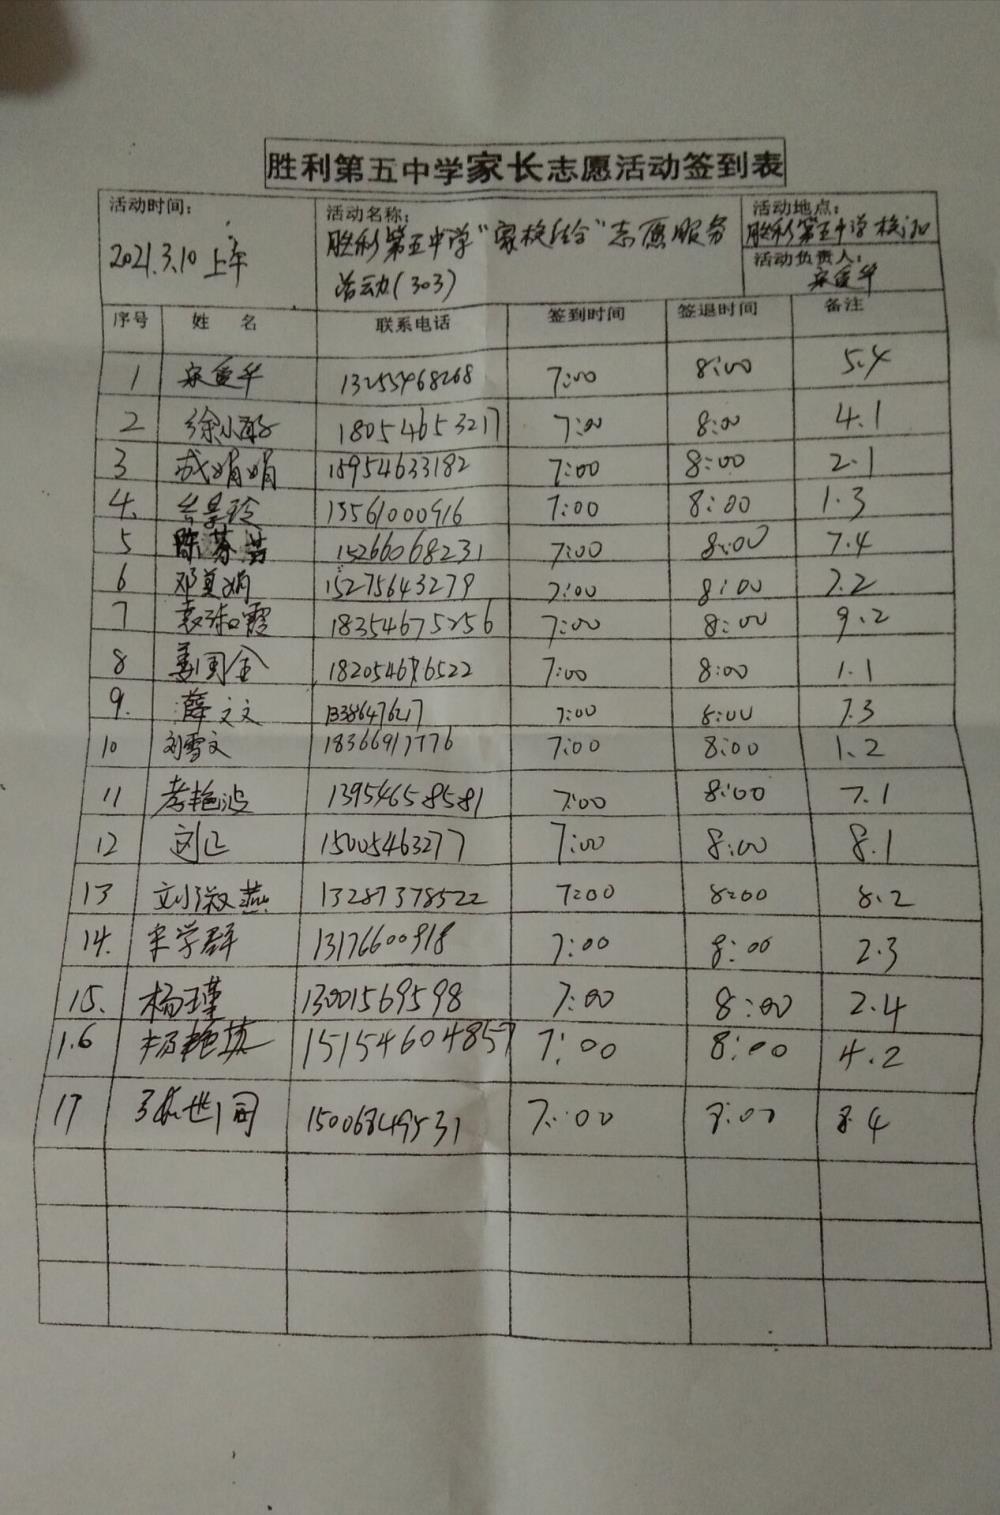 胜利第五中学家长志愿活动签到表
活动时间： 活动名称： 活动地点：
2021.3.10 上午 胜利第五中学"家校结合"志愿服务 胜利第五中学校门口
活动(303) 活动负责人：
序号 姓 名 联系电话 签到时间 签退时间 备注
1 13255468268 7:00 8:00 5.4
2 徐小 18054653217 7:00 8:00 4.1
3 成娟娟 15954633182 7:00 8:00 2.1
4. 15561000916 7:00 8:00 1.3
5 陈芬芳 15266068231 7:00 8:00 7.4
6 邓 娟 15275643279 7:00 8:00 7.2
7 袁 霞 18354675256 7:00 8:00 9.2
8 姜国金 182054676522 7:00 8:00 1.1
9. 薛文文 1338647617 7:00 8:00 7.3
10 刘雪文 18366917776 7:00 8:00 1.2
11 李艳波 13954658581 7:00 8:00 7.1
12 刘 15005463277 7:00 8:00 8.1
13 刘淑燕 13287378522 7:00 8:00 8.2
14. 宋学群 13176600918 7:00 8:00 2.3
15. 杨瑾 13001569598 7:00 8:00 2.4
1.6 杨艳 15154604857 7:00 8:00 4.2
17 张世 15006849531 7:00 8:00 8.4